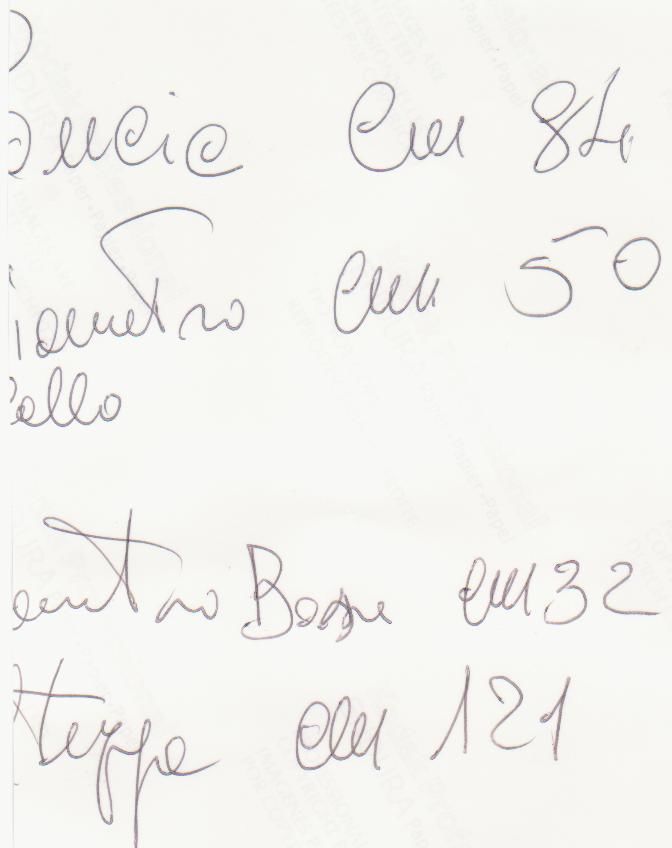 ancia cm 84
iametro cm 50
collo
ametro Base cm 32
ltezza cm 121